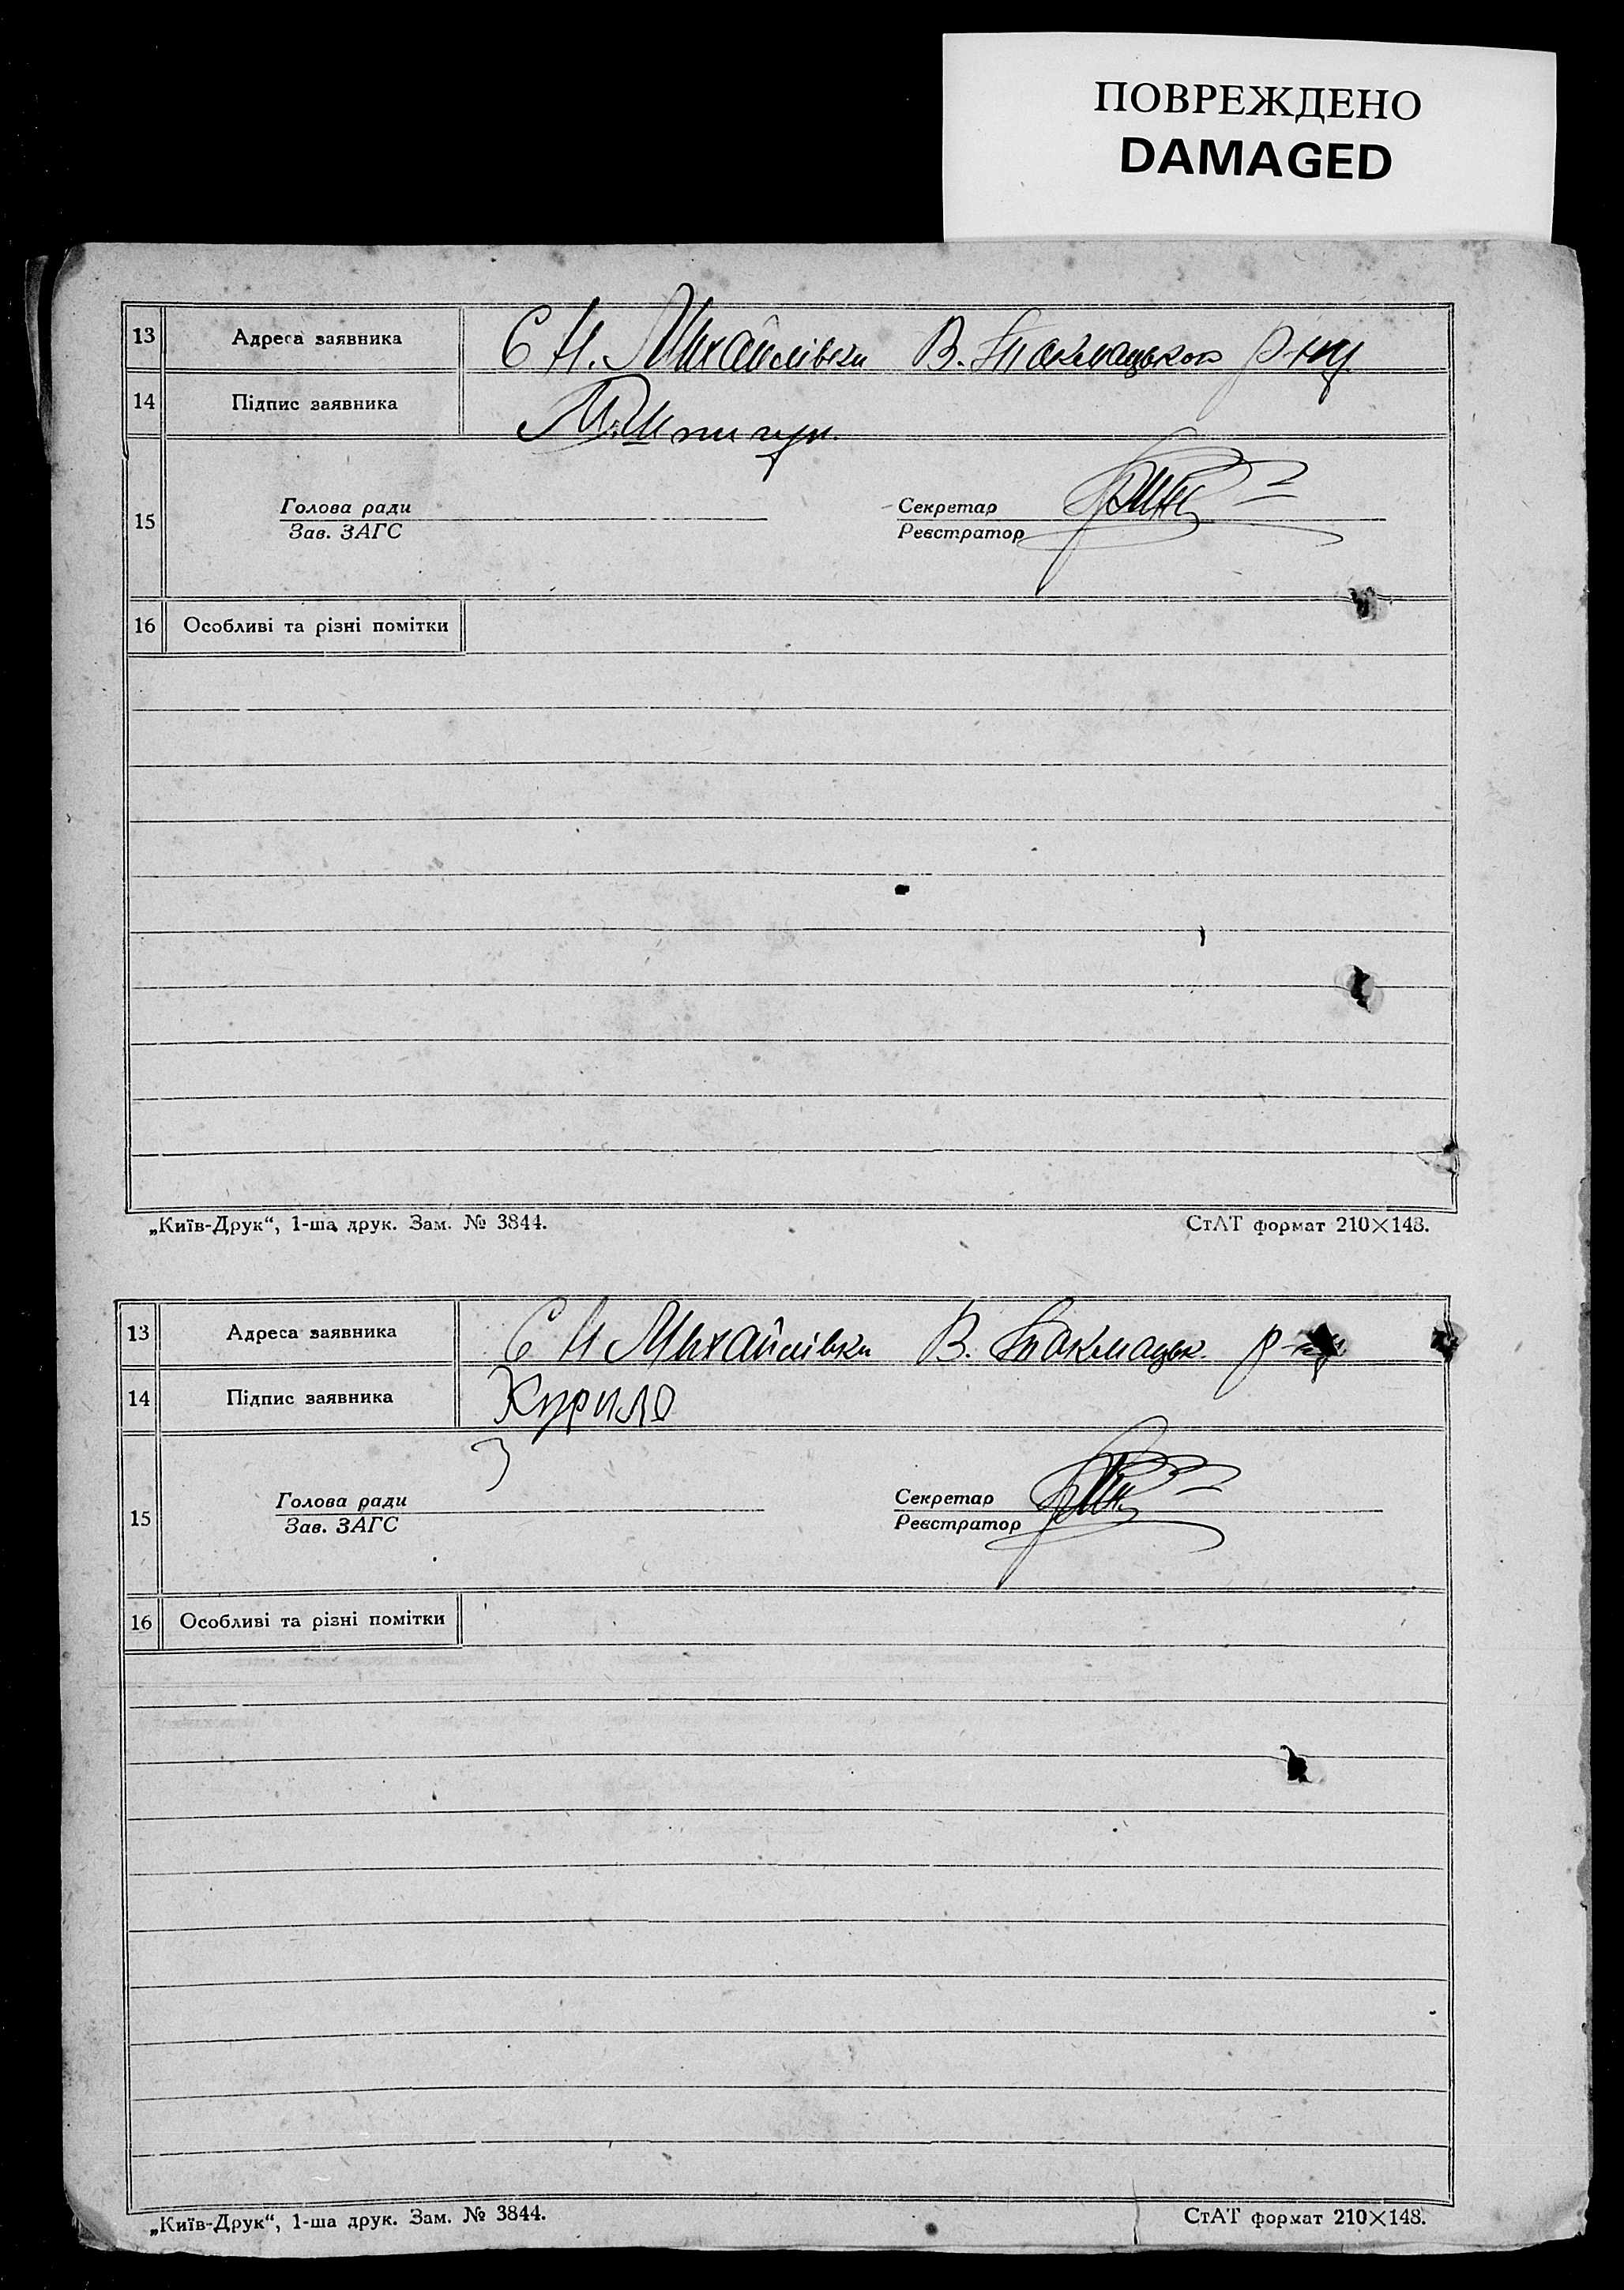 ПОВРЕЖДЕНО
DAMAGED
13 Адреса заявника С Н. Михайлівки В. Токмацького р-ну
14 Підпис заявника
15 Голова ради Секретар
Зав. ЗАГС Реєстратор
16 Особливі та різні помітки
„Київ-Друк“, 1-ша друк. Зам. № 3844. СтАТ формат 210×148.
13 Адреса заявника С Н Михайлівки В. Токмацьк. р-ну
14 Підпис заявника Курило
15 Голова ради Секретар
Зав. ЗАГС Реєстратор
16 Особливі та різні помітки
„Київ-Друк“, 1-ша друк. Зам. № 3844. СтАТ формат 210×148.